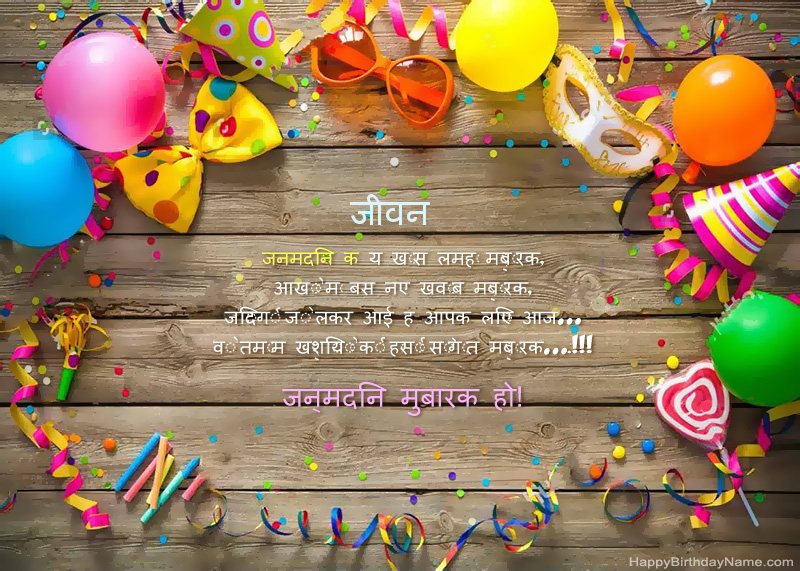 जीवन
जनमदिन क य खास लमह मुबारक,
आखों म बस नए खवाब मुबारक,
जिदगी जो लेकर आई ह आपक लिए आज...
वो तमाम खुशियों की हसीं सौगात मुबारक...!!!
जन्मदिन मुबारक हो!
HappyBirthdayName.com